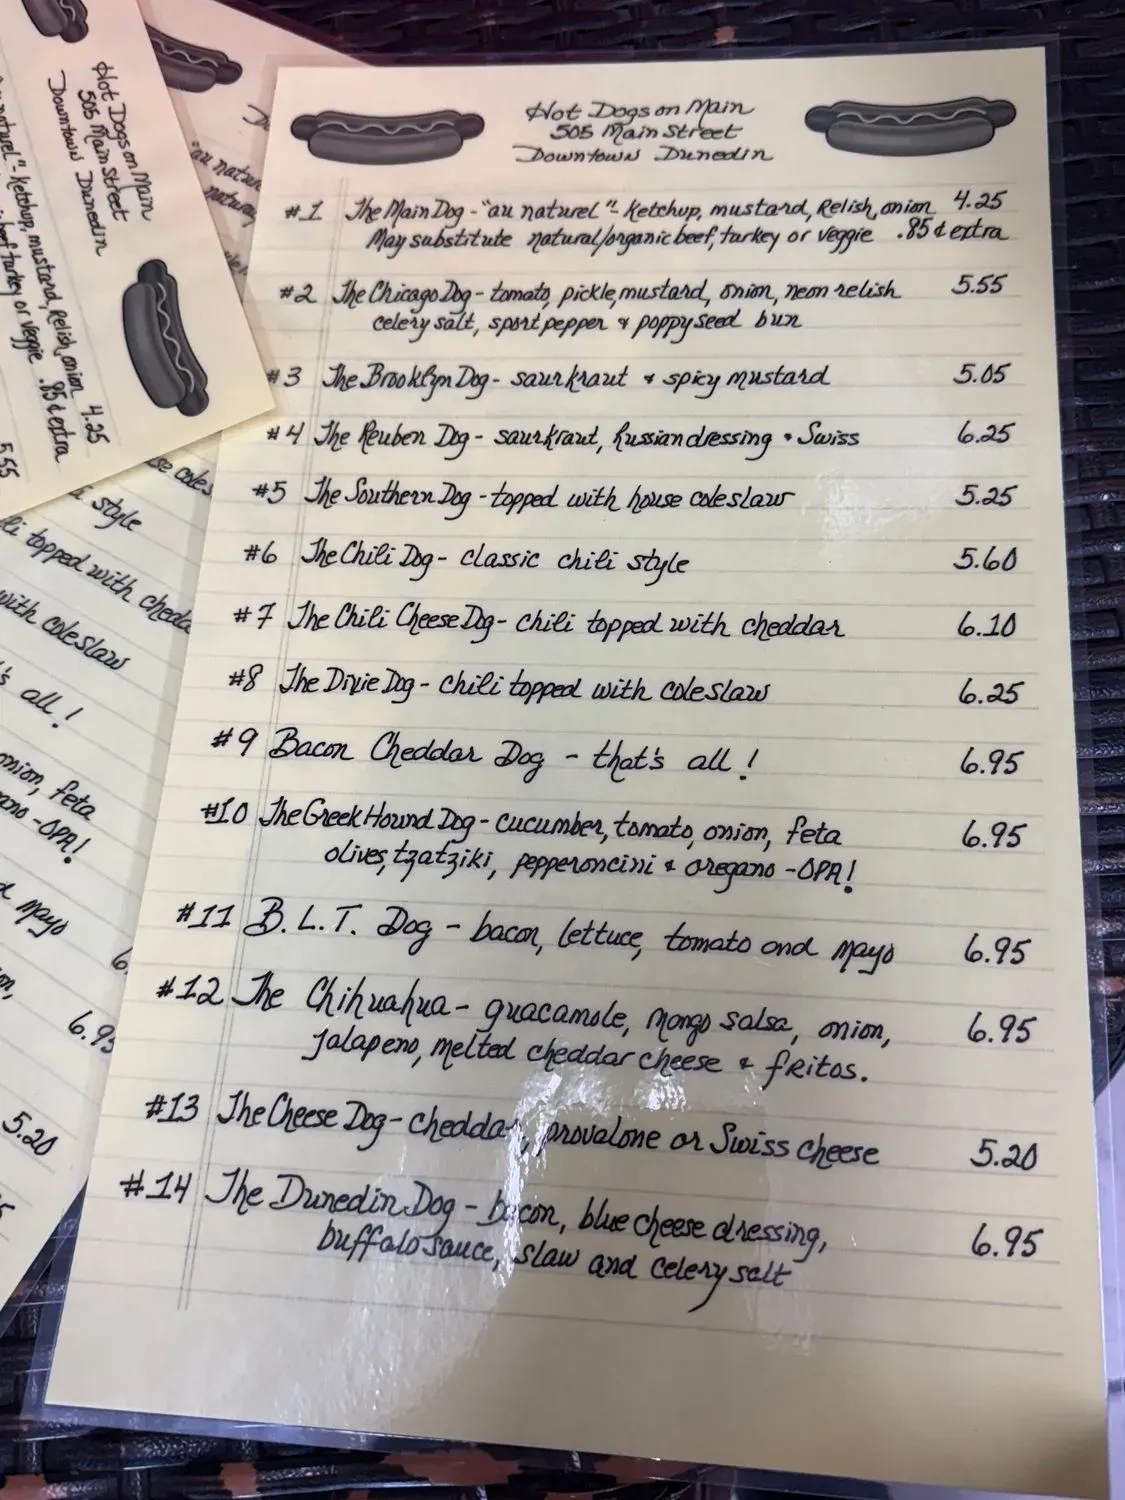 Hot Dogs on Main
505 Main Street
Downtown Dunedin
#1 The Main Dog - "au naturel" - Ketchup, mustard, Relish, onion 4.25
May substitute natural/organic beef, turkey or veggie .85¢ extra
#2 The Chicago Dog - tomato, pickle, mustard, onion, neon relish 5.55
celery salt, sport pepper & poppyseed bun
#3 The Brooklyn Dog - saurkraut & spicy mustard 5.05
#4 The Reuben Dog - saurkraut, Russian dressing & Swiss 6.25
#5 The Southern Dog - topped with house coleslaw 5.25
#6 The Chili Dog - classic chili style 5.60
#7 The Chili Cheese Dog - chili topped with cheddar 6.10
#8 The Dixie Dog - chili topped with coleslaw 6.25
#9 Bacon Cheddar Dog - that's all! 6.95
#10 The Greek Hound Dog - cucumber, tomato, onion, feta 6.95
olives, tzatziki, pepperoncini & oregano - OPA!
#11 B.L.T. Dog - bacon, lettuce, tomato and mayo 6.95
#12 The Chihuahua - guacamole, mango salsa, onion, 6.95
jalapeno, melted cheddar cheese & fritos.
#13 The Cheese Dog - cheddar, provalone or Swiss cheese 5.20
#14 The Dunedin Dog - bacon, blue cheese dressing, 6.95
buffalo sauce, slaw and celery salt
Hot Dogs on Main
505 Main Street
Downtown Dunedin
Ketchup, mustard, Relish, onion 4.25
turkey or veggie .85¢ extra
5.55
style
topped with
with coleslaw
all!
onion, feta
OPA!
mayo
6.95
5.20